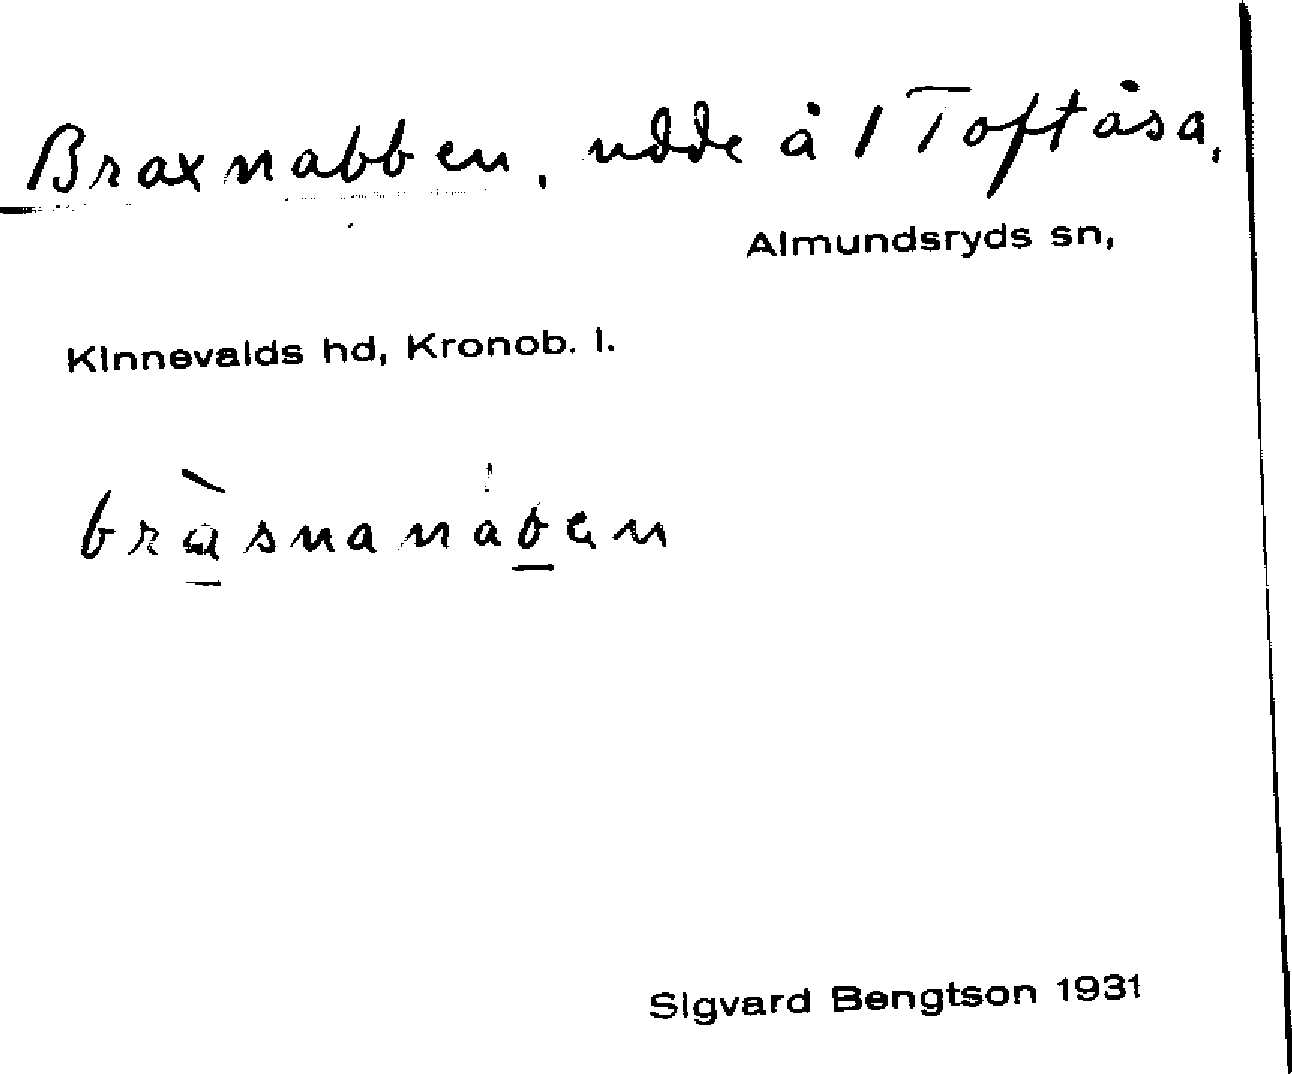 Braxnabben, udde å 1 Toftåsa,
Almundsryds sn,
Kinnevalds hd, Kronob. l.
bràsnanáben
Sigvard Bengtson 1931